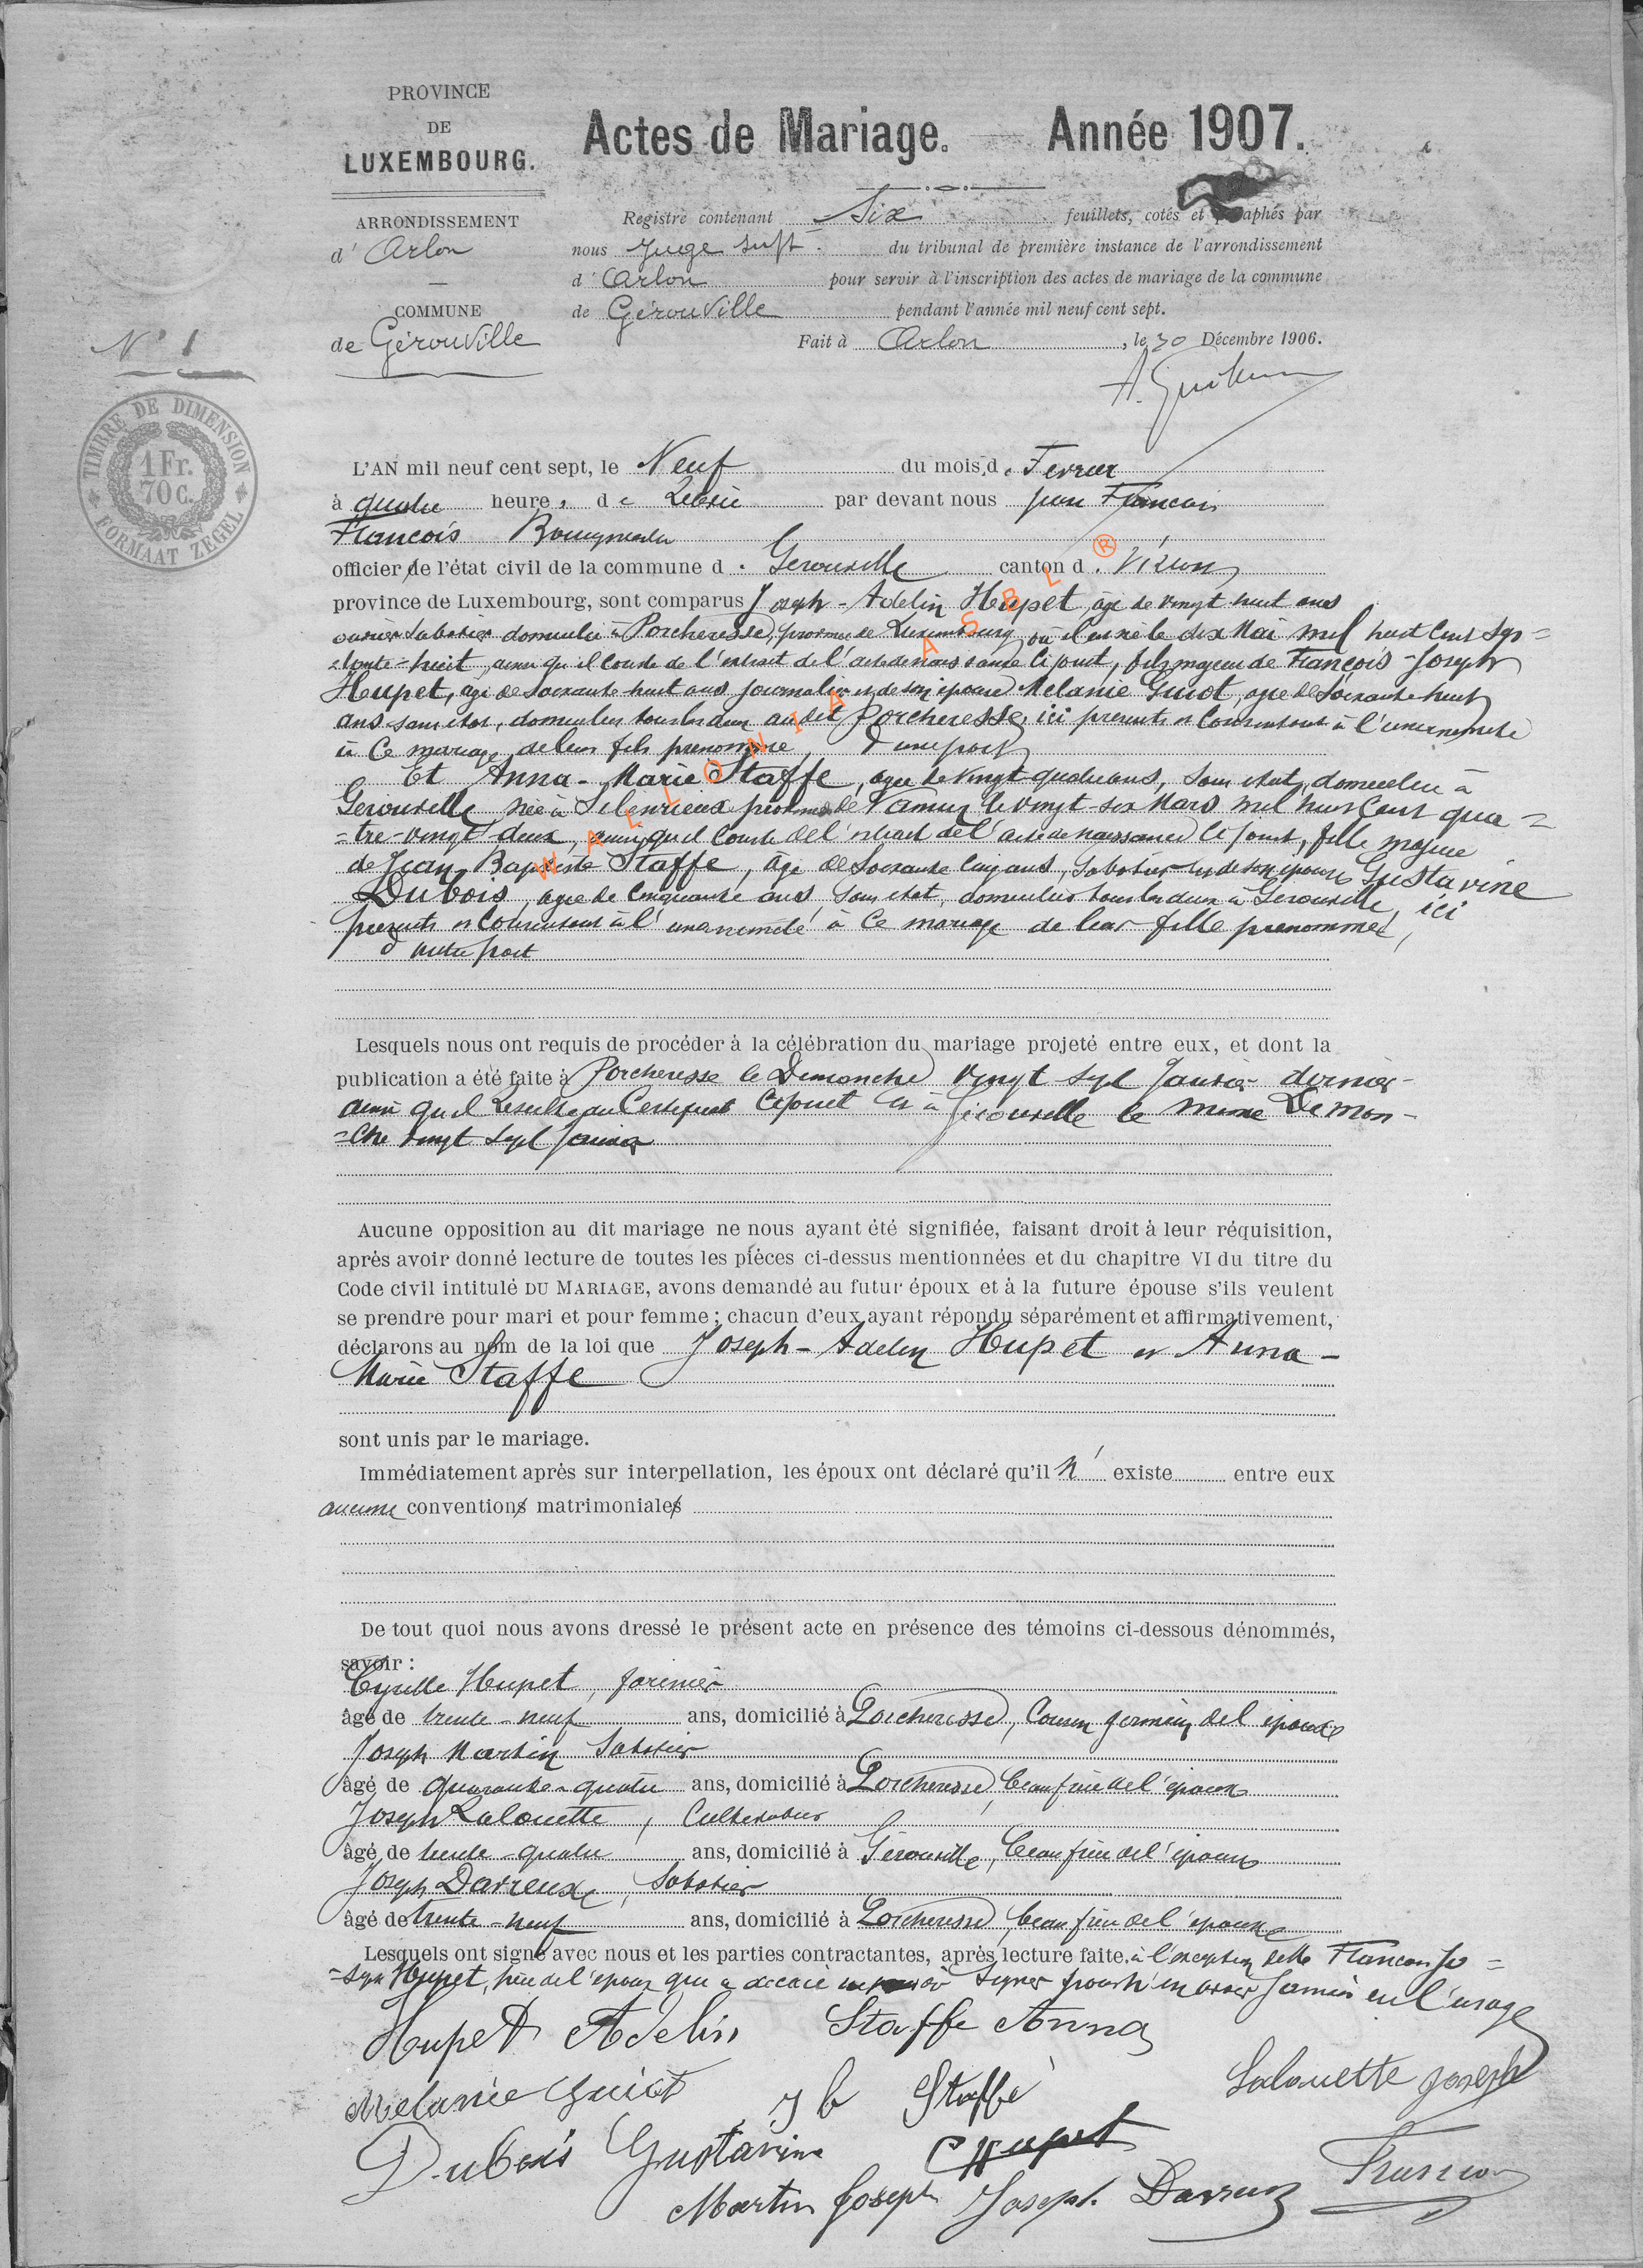 PROVINCE
DE
LUXEMBOURG.
ARRONDISSEMENT
d' Arlon
COMMUNE
de Gérouville
Actes de Mariage. Année 1907.
Registre contenant Six feuillets, cotés et paraphés par
nous Juge supt. du tribunal de première instance de l'arrondissement
d' Arlon pour servir à l'inscription des actes de mariage de la commune
de Gérouville pendant l'année mil neuf cent sept.
Fait à Arlon, le 30 Décembre 1906.
N° 1
TIMBRE DE DIMENSION
1 Fr.
70 C.
FORMAAT ZEGEL
L'AN mil neuf cent sept, le Neuf du mois de Fevrier
à quatre heures de Relevée par devant nous Jean François
François
officier de l'état civil de la commune de Gerouville canton de Virton
province de Luxembourg, sont comparus Joseph-Adelin Hupet, âgé de vingt huit ans
ouvrier sabotier domicilié à Porcheresse, province de Luxembourg où il est né le dix Mai mil huit Cent Sep=
=tante=huit, ainsi qu'il Conste de l'extrait de l'acte de naissance Ci joint, fils majeur de François-Joseph
Hupet, agé de Soixante huit ans journalier et de son épouse Mélanie Guiot, agée de Soixante huit
ans sans état, domiciliés tous les deux au dit Porcheresse, ici présents et Consentant à l'unanimité
à Ce mariage de leur fils prénommé, d'une part
Et Anna-Marie Staffe, agée de vingt quatre ans, sans état, domiciliée à
Gerouville née à Silenrieux province de Namur le vingt six Mars mil huit Cent qua=
=tre-vingt deux, ainsi qu'il Conste de l'extrait de l'acte de naissance Ci joint, fille majeure
de Jean Baptiste Staffe, âgé de Soixante Cinq ans, Sabotier et de son épouse Gustavine
Dubois, agée de Cinquante ans, Sans état, domiciliés tous les deux à Gerouville, ici
présents et Consentant à l'unanimité à Ce mariage de leur fille prénommée,
d'autre part
Lesquels nous ont requis de procéder à la célébration du mariage projeté entre eux, et dont la
publication a été faite à Porcheresse le Dimanche vingt sept Janvier dernier-
ainsi qu'il Résulte du Certificat Ci joint et à Gérouville le même Diman-
=che vingt sept Janvier
Aucune opposition au dit mariage ne nous ayant été signifiée, faisant droit à leur réquisition,
après avoir donné lecture de toutes les pièces ci-dessus mentionnées et du chapitre VI du titre du
Code civil intitulé DU MARIAGE, avons demandé au futur époux et à la future épouse s'ils veulent
se prendre pour mari et pour femme ; chacun d'eux ayant répondu séparément et affirmativement,
déclarons au nom de la loi que Joseph-Adelin Hupet et Anna-
Marie Staffe
sont unis par le mariage.
Immédiatement après sur interpellation, les époux ont déclaré qu'il n' existe entre eux
aucune conventions matrimoniales
De tout quoi nous avons dressé le présent acte en présence des témoins ci-dessous dénommés,
savoir :
Cyrille Hupet,
âgé de trente-neuf ans, domicilié à Porcheresse, Cousin germain de l'époux
Joseph Martin Sabotier
âgé de quarante-quatre ans, domicilié à Porcheresse, beau frère de l'époux
Joseph Lalouette, Cultivateur
âgé de trente-quatre ans, domicilié à Gérouville, beau frère de l'époux
Joseph Darreux, Sabotier
âgé de trente-neuf ans, domicilié à Porcheresse, beau frère de l'époux
Lesquels ont signé avec nous et les parties contractantes, après lecture faite. à l'exception de François Jo=
=seph Hupet, père de l'époux qui a déclaré ne savoir signer pour n'en avoir jamais eu l'usage
Hupet Adelin Staffe Anna
Melanie Guiot J b Staffe Lalouette joseph
Dubois Gustavine C Hupet
Martin Joseph Joseph Darreux François
WALLONIA ASBL ®